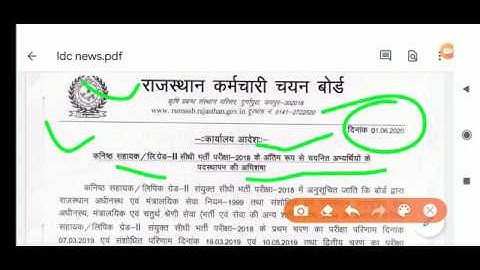 ldc news.pdf
राजस्थान कर्मचारी चयन बोर्ड
कृषि प्रबन्ध संस्थान परिसर, दुर्गापुरा, जयपुर-302018
www.rsmssb.rajasthan.gov.in दूरभाष नं. 0141-2722520
दिनांक 01.06.2020
--:कार्यालय आदेश:--
कनिष्ठ सहायक/लि.ग्रेड-II सीधी भर्ती परीक्षा-2018 के अंतिम रूप से चयनित अभ्यर्थियों के
पदस्थापन की अभिशंषा
कनिष्ठ सहायक/लिपिक ग्रेड-II संयुक्त सीधी भर्ती परीक्षा-2018 में अनुसूचित जाति कि बोर्ड द्वारा
राजस्थान अधीनस्थ एवं मंत्रालयिक सेवा नियम-1999 तथा
अधीनस्थ, मंत्रालयिक एवं चतुर्थ श्रेणी सेवा (भर्ती एवं सेवा की अन्य
सहायक/लिपिक ग्रेड-II संयुक्त सीधी भर्ती परीक्षा-2018 के प्रथम चरण का परीक्षा परिणाम दिनांक
07.03.2019 एवं संशोधित परिणाम दिनांक 19.03.2019 एवं 10.05.2019 तथा द्वितीय चरण का परिणाम